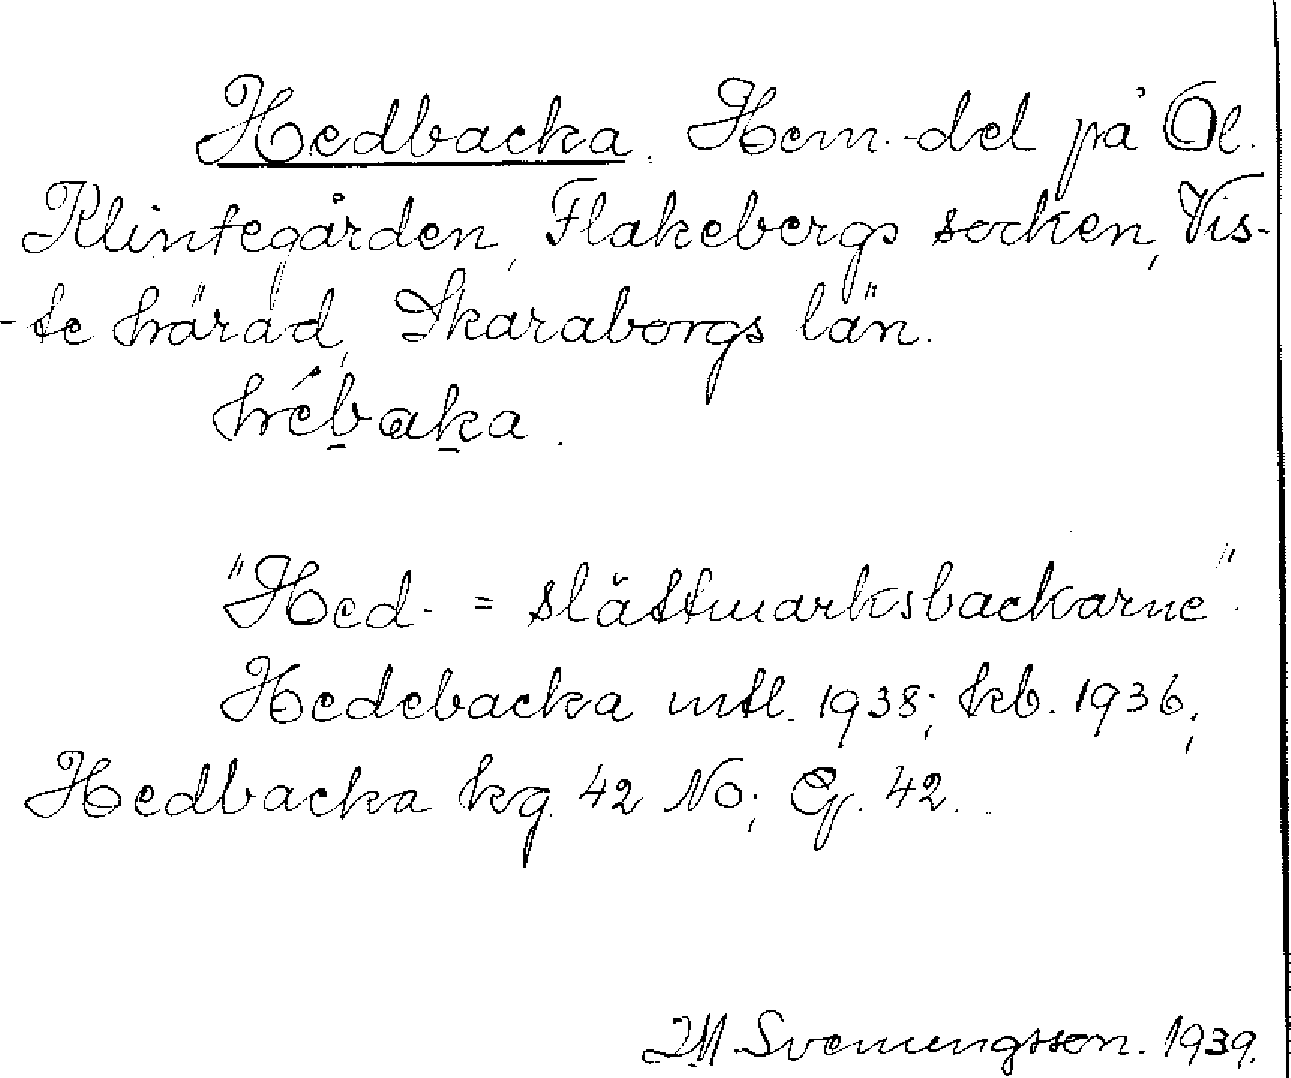 Hedbacka. Hem.-del på Öl.
Klintegården, Flakebergs socken, Vis-
-te härad, Skaraborgs län.
hébaka.
"Hed- = slättmarksbackarne".
Hedebacka mtl. 1938; kb. 1936;
Hedbacka kg. 42 No; Ej. 42.
Svenungsson. 1939.